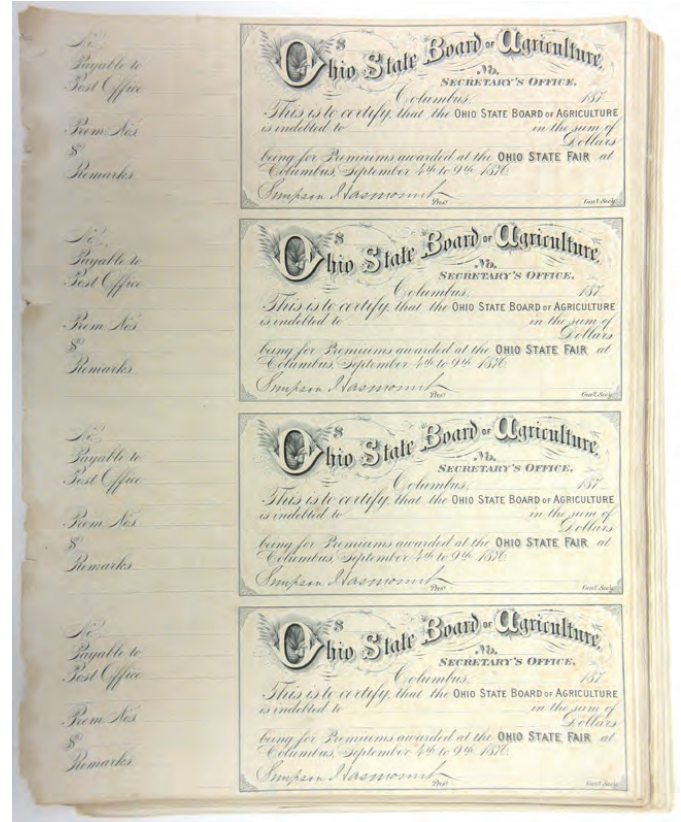 No.
Payable to
Post Office
Prem. Nos.
$
Remarks
$
Ohio State Board of Agriculture,
No.
SECRETARY'S OFFICE,
Columbus, 187
This is to certify, that the OHIO STATE BOARD OF AGRICULTURE
is indebted to in the sum of
Dollars
being for Premiums awarded at the OHIO STATE FAIR at
Columbus, September 4th to 9th 1876.
Simpson
Prest. Gen'l. Sec'y.
No.
Payable to
Post Office
Prem. Nos.
$
Remarks
$
Ohio State Board of Agriculture,
No.
SECRETARY'S OFFICE,
Columbus, 187
This is to certify, that the OHIO STATE BOARD OF AGRICULTURE
is indebted to in the sum of
Dollars
being for Premiums awarded at the OHIO STATE FAIR at
Columbus, September 4th to 9th 1876.
Simpson
Prest. Gen'l. Sec'y.
No.
Payable to
Post Office
Prem. Nos.
$
Remarks
$
Ohio State Board of Agriculture,
No.
SECRETARY'S OFFICE,
Columbus, 187
This is to certify, that the OHIO STATE BOARD OF AGRICULTURE
is indebted to in the sum of
Dollars
being for Premiums awarded at the OHIO STATE FAIR at
Columbus, September 4th to 9th 1876.
Simpson
Prest. Gen'l. Sec'y.
No.
Payable to
Post Office
Prem. Nos.
$
Remarks
$
Ohio State Board of Agriculture,
No.
SECRETARY'S OFFICE,
Columbus, 187
This is to certify, that the OHIO STATE BOARD OF AGRICULTURE
is indebted to in the sum of
Dollars
being for Premiums awarded at the OHIO STATE FAIR at
Columbus, September 4th to 9th 1876.
Simpson
Prest. Gen'l. Sec'y.